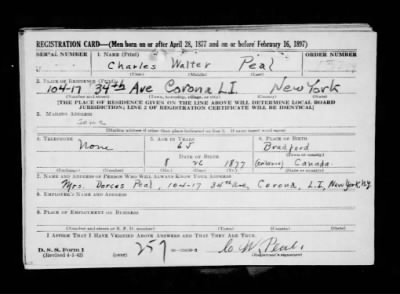 REGISTRATION CARD—(Men born on or after April 28, 1877 and on or before February 16, 1897)
SERIAL NUMBER
1. NAME (Print)
ORDER NUMBER
Charles Walter Peal
(First) (Middle) (Last)
2. PLACE OF RESIDENCE (Print)
104-17 34th Ave Corona L.I. New York
(Number and street) (Town, township, village, or city) (County) (State)
[THE PLACE OF RESIDENCE GIVEN ON THE LINE ABOVE WILL DETERMINE LOCAL BOARD
JURISDICTION; LINE 2 OF REGISTRATION CERTIFICATE WILL BE IDENTICAL]
3. MAILING ADDRESS
Same
[Mailing address if other than place indicated on line 2. If same insert word same]
4. TELEPHONE
5. AGE IN YEARS
6. PLACE OF BIRTH
None
65
Bradford
8 26 1877
(Ontario) Canada
7. NAME AND ADDRESS OF PERSON WHO WILL ALWAYS KNOW YOUR ADDRESS
Mrs. Dorcas Peal, 104-17 34th Ave, Corona, L.I., New York, N.Y.
8. EMPLOYER'S NAME AND ADDRESS
9. PLACE OF EMPLOYMENT OR BUSINESS
(Number and street or R. F. D. number) (Town) (County) (State)
I AFFIRM THAT I HAVE VERIFIED ABOVE ANSWERS AND THAT THEY ARE TRUE.
D. S. S. Form 1
(Revised 4-1-42) (over)
257
C. W. Peal
(Registrant's signature)